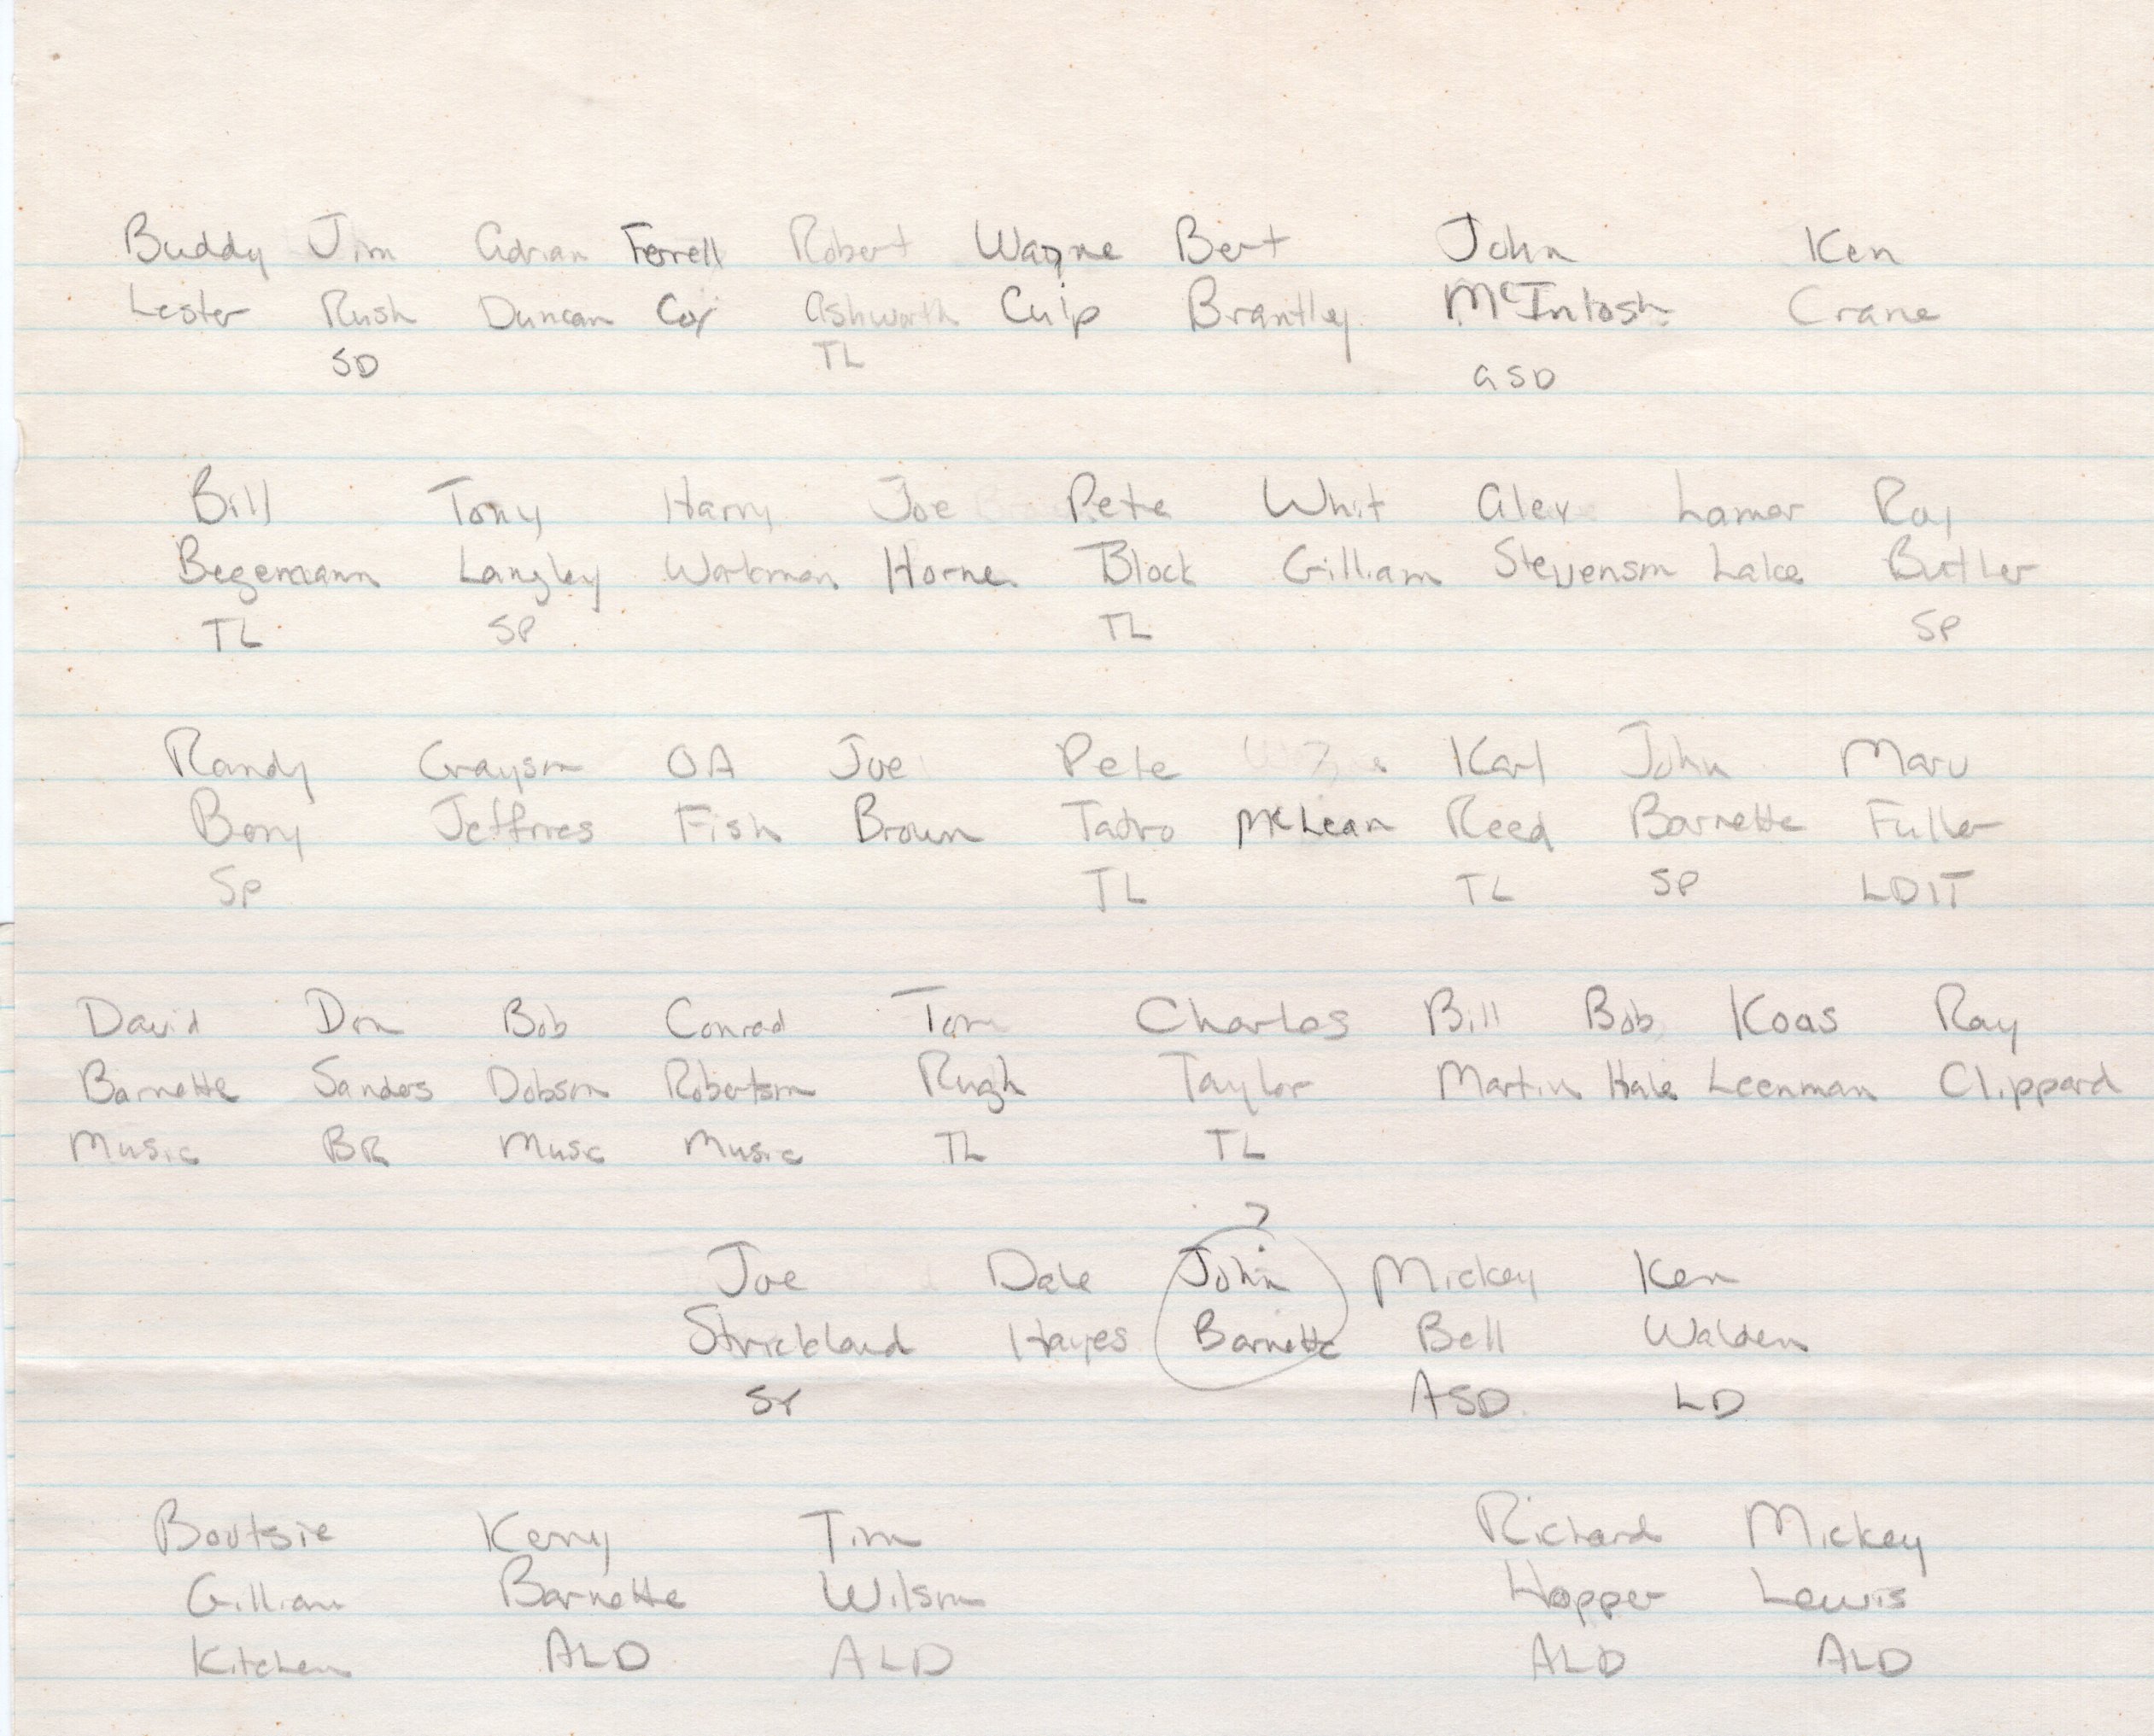 Buddy Jim Adrian Ferrell Robert Wayne Bert John Ken
Lester Rush Duncan Cox Ashworth Culp Brantley McIntosh Crane
SD TL ASD
Bill Tony Harry Joe Pete Whit Alex Lamar Ray
Begemann Langley Workman Horne Block Gilliam Stevenson Lake Butler
TL SP TL SP
Randy Grayson OA Joe Pete Karl John Marv
Berry Jeffries Fish Brown Tadro McLean Reed Barnette Fuller
SP TL TL SP LDIT
David Don Bob Conrad Tom Charles Bill Bob Koas Ray
Barnette Sanders Dobson Robertson Rugh Taylor Martin Hale Leenman Clippard
Music BR Music Music TL TL
?
Joe Dale John Mickey Ken
Strickland Hayes Barnette Bell Walden
SP ASD LD
Bootsie Kerry Tim Richard Mickey
Gilliam Barnette Wilson Hopper Lewis
Kitchen ALD ALD ALD ALD